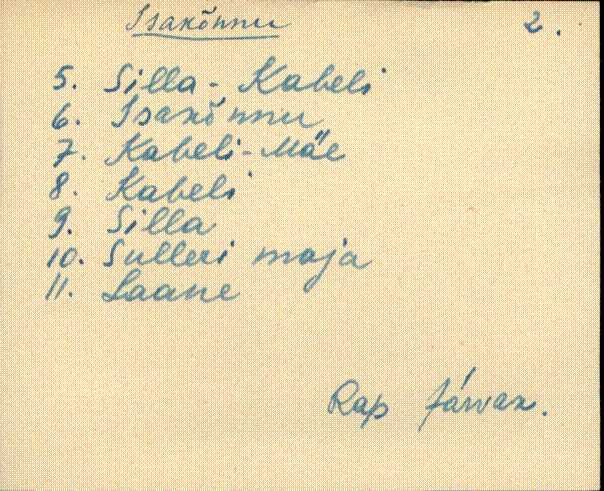 Isakõnnu 2.
5. Silla-Kabeli
6. Isakõnnu
7. Kabeli-Mäe
8. Kabeli
9. Silla
10. Sulleri maja
11. Laane
Rap Járvak.